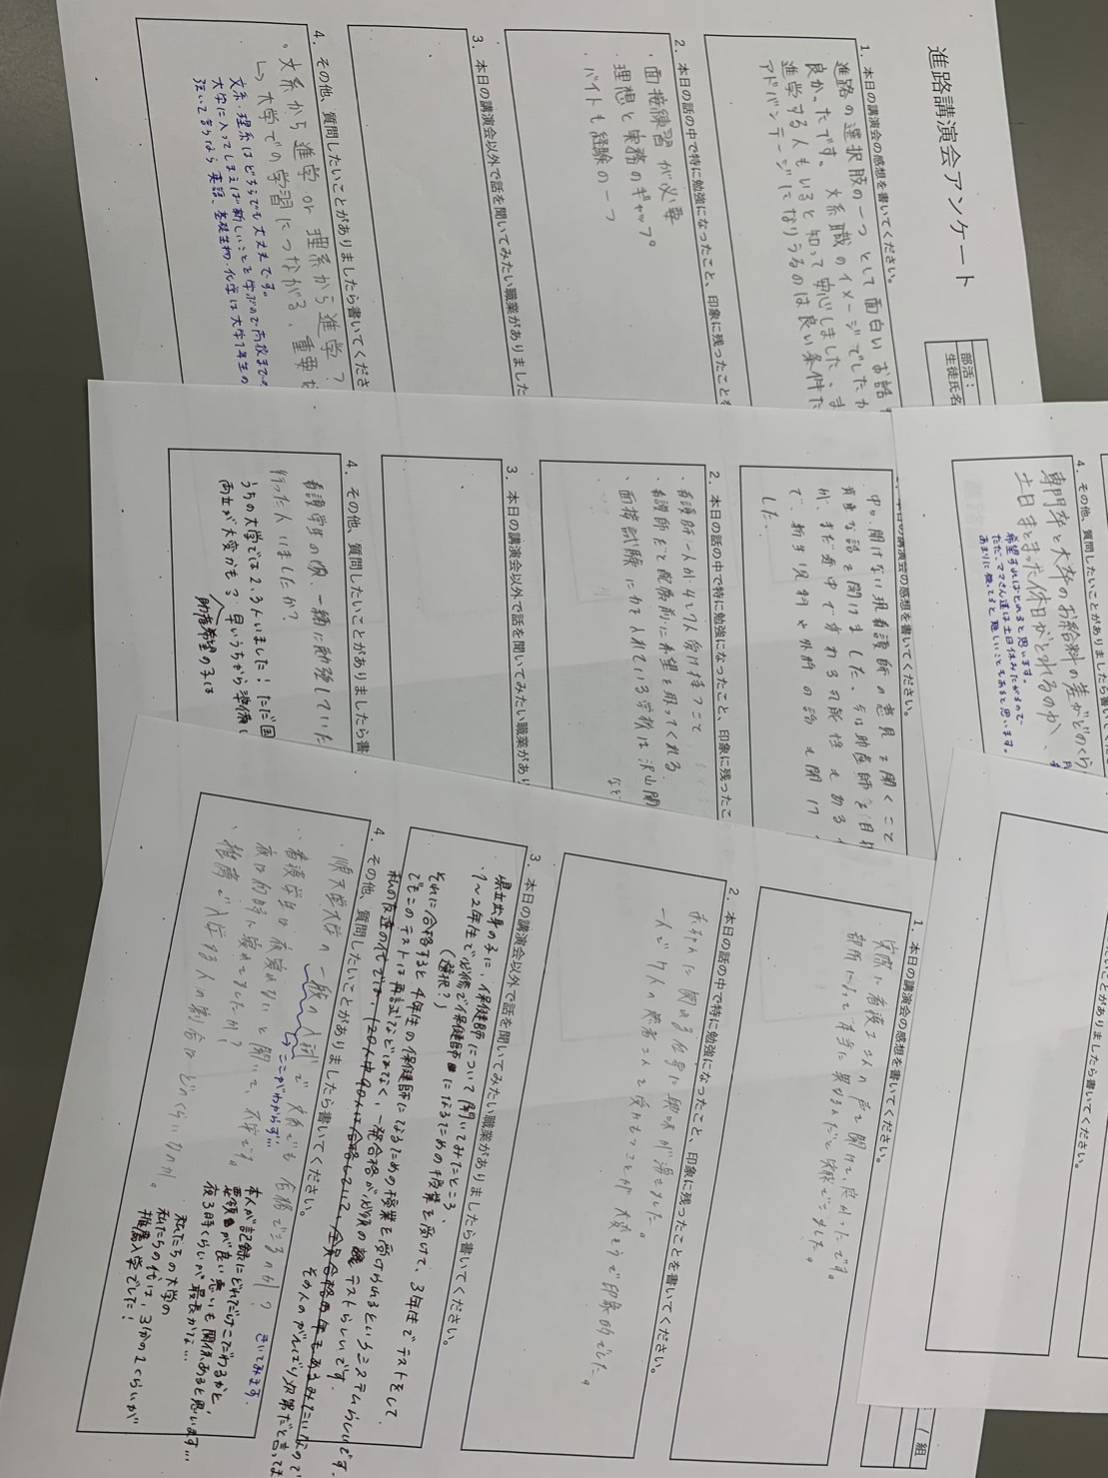 進路講演会アンケート
部活:
生徒氏名
1. 本日の講演会の感想を書いてください。
進路の選択肢の一つとして面白いお話
良かったです。大系職のイメージでしたが
進学する人もいると知って安心しました、ま
アドバンテージになりうるのは良い条件だ
2. 本日の話の中で特に勉強になったこと、印象に残ったことを
・面接練習が必要
理想と実務のギャップ。
バイトも経験の一つ
3. 本日の講演会以外で話を聞いてみたい職業がありました
4. その他、質問したいことがありましたら書いてくださ
・文系から進学 or 理系から進学?
↳ 大学での学習につながる、重要な
文系・理系はどちらでも大丈夫です。
大学に入ってしまえば新しいことを学ぶので高校までの
強いて言うなら英語、基礎生物・化学は大学1年生の
本日の講演会の感想を書いてください。
中々聞けない現看護師の意見を聞くこと
貴重な話を聞けました。今は助産師を目指
が、まだ途中で変わる可能性もある
で、新生児科や外科の話も聞けて
した。
2. 本日の話の中で特に勉強になったこと、印象に残ったこ
・看護師一人が4~7人受け持つこと
・看護師だと配属前に希望を取ってくれる
・面接試験に力を入れている学校は沢山聞
など
3. 本日の講演会以外で話を聞いてみたい職業があり
4. その他、質問したいことがありましたら書
看護学生の頃、一緒に勉強していた
行った人いましたか?
うちの大学では2,3人いました! ただ国
両立が大変かも? 早いうちから準備し
助産希望の子は
4. その他、質問したいことがありましたら書いて
専門卒と大卒のお給料の差がどのくら
土日まとまった休日がとれるのか、
希望すればとれると思います。
ただ、ママさん達は土日休みたがるので
あまりに被ってると難しいこともあると思います。
いことがありましたら書いてください。
1 組
1. 本日の講演会の感想を書いてください。
実際に看護師さんの声を聞けて良かったです。
部所によって本当に異なるんだと実感できました。
2. 本日の話の中で特に勉強になったこと、印象に残ったことを書いてください。
赤ちゃんに関わる仕事に興味が湧きました。
一人で7人の患者さんを受けもつことが大変そうで印象的でした。
3. 本日の講演会以外で話を聞いてみたい職業がありましたら書いてください。
県立出身の子に、保健師について聞いてみたところ、
・1~2年生で必修で保健師になるための授業を受けて、3年生でテストをして
(選択?)
それに合格すると4年生の保健師になるための授業を受けられるというシステムらしいです。
でもこのテストは再試などはなく、一発合格が必須のテストらしいです。
私の友達の代では、(20人中90人は合格していて、全員合格の年もあるみたいなので
その人のがんばり次第だと言ってま
4. その他、質問したいことがありましたら書いてください。
・順天堂大学の一般の入試で文系でも合格できるのか?
ここがわからず… きいてみます。
・看護学生は夜寝れないと聞いて、不安です。
夜は何時に寝れてましたか?
本人が記録にどれだけこだわるかと、
要領が良い悪いも関係あると思います…
夜3時くらいが最長かな…
・推薦で入学する人の割合はどのくらいなのか。
私たちの大学の
私たちの代は、3分の2くらいが
推薦入学でした!